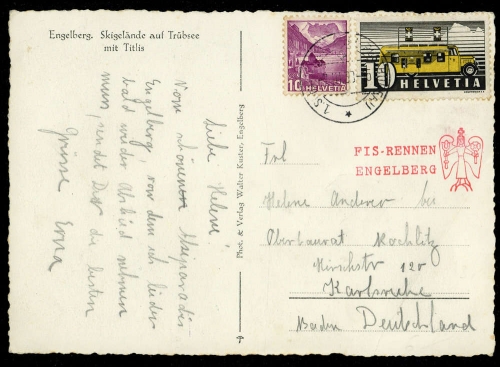 Engelberg. Skigelände auf Trübsee
mit Titlis
Liebe Helene!
Vom schönen Skiparadies
Engelberg, von dem ich leider
bald wieder Abschied nehmen
muss, sendet Dir die besten
Grüsse Erna
Phot. & Verlag Walter Kuster, Engelberg
10 HELVETIA
10
HELVETIA
FIS-RENNEN
ENGELBERG
Frl
Helene Anderer bei
Oberbaurat Kochlitz
Kirschstr 120
Karlsruhe
Baden Deutschland